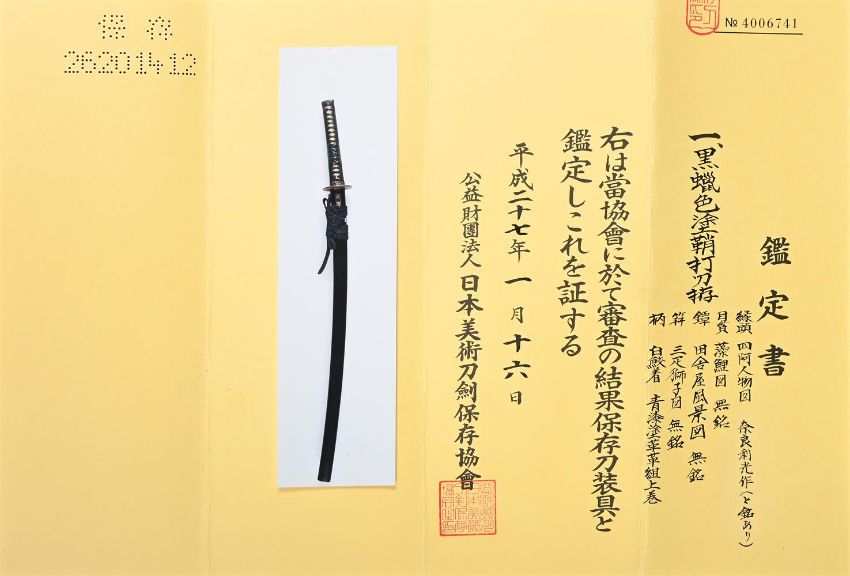 № 4006741
鑑定書
一、黒蠟色塗鞘打刀拵
縁頭 四阿人物図 奈良利光作(と銘あり)
目貫 藻鯉図 無銘
鐔 田舎屋風景図 無銘
笄 三疋獅子図 無銘
柄 白鮫着 青漆塗革組上巻
右は當協會に於て審査の結果保存刀装具と
鑑定しこれを証する
平成二十七年一月十六日
公益財團法人 日本美術刀劍保存協會
保存
26201412